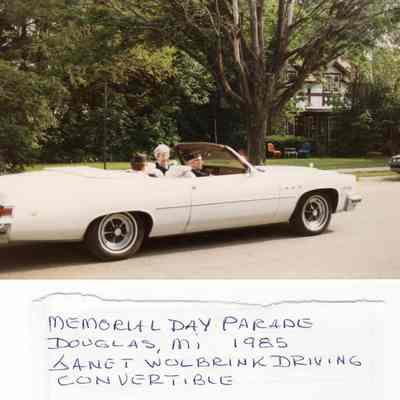 MEMORIAL DAY PARADE
DOUGLAS, MI 1985
JANET WOLBRINK DRIVING
CONVERTIBLE